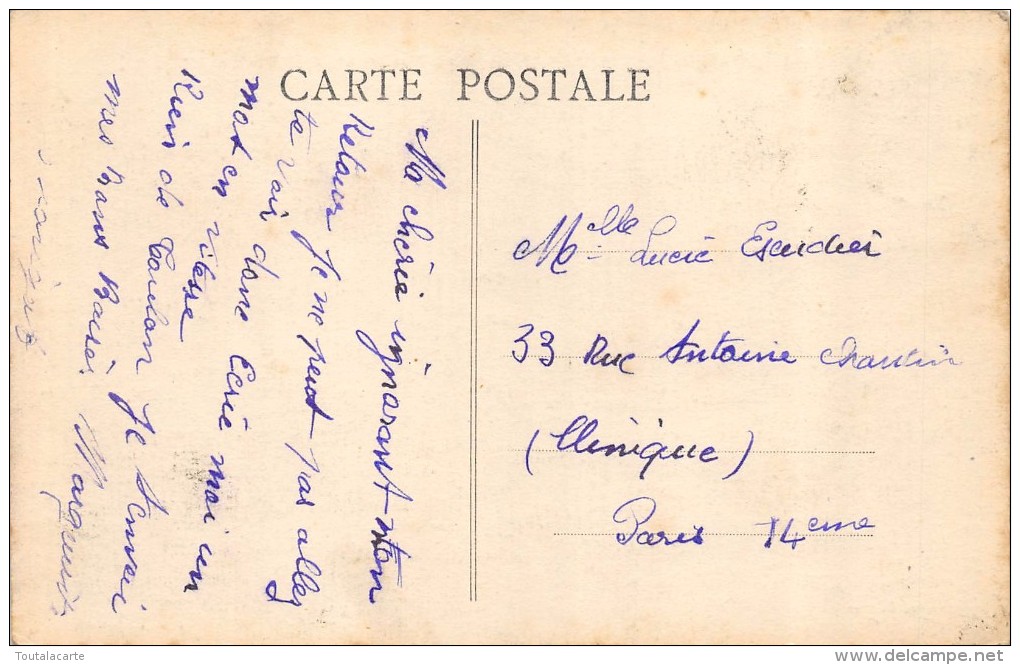 CARTE POSTALE
Ma chérie ignorant ton
Retour Je ne peut pas allez
te voir donc Ecrie moi un
mot en vitesse
Rien de Toulon Je t'envoi
mes bons Baiser Marguerite
Melle Lucie Escudier
33 Rue Antoine Chantin
(Clinique)
Paris 14eme
Toutalacarte